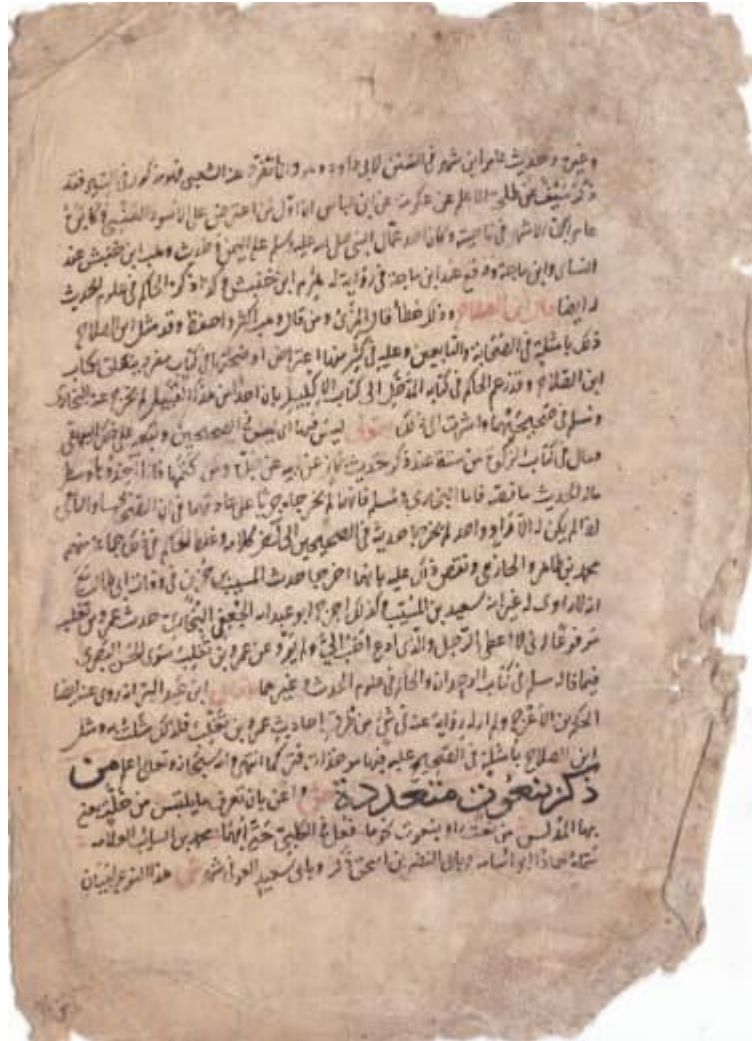 وغيره وحديث عامر ابن شهر في السنن لابي داود وهو وان تفرد عنه الشعبي فهو مذكور في السير فقد
ذكر سيف عن طلحة الاعلم عن عكرمة عن ابن عباس ان اول من اعترض على الاسود العنسي وكابره
عامر ابن شهر في ناحيته وكان احد عمال النبي صلى الله عليه وسلم على اليمن وحديث وهب ابن خنبش عند
النساي وابن ماجة ووقع عند ابن ماجة في رواية له هرم ابن خنبش وكذا ذكره الحاكم في علوم الحديث
له ايضا قال ابن الصلاح وذلك خطأ قال المزي ومن قال وهب اكثر واحفظ وقد مثل ابن الصلاح
ذلك بامثلة في الصحابة والتابعين وعليه في كثير منها اعتراض اوضحتها في كتاب مفرد يتعلق بكتاب
ابن الصلاح وقد زعم الحاكم في كتابه المدخل الى كتاب الاكليل بان احدا من هذا القبيل لم يخرج عنه البخاري
ومسلم في صحيحيهما واشرت الى ذلك بقولي ليس فيها اي ليس في الصحيحين وتبعه على ذلك البيهقي
وقال في كتاب الزكوة من سننه عند ذكر حديث بهز عن ابيه عن جده ومن كتمها فانا آخذوها وشطر
ماله الحديث ما نصه فاما البخاري ومسلم فانهما لم يخرجاه جريا على عادتهما في ان الصحابي او التابعي
اذا لم يكن له الا راو واحد لم يخرجا حديثه في الصحيحين الى آخر كلامه وغلط الحاكم في ذلك جماعة منهم
محمد بن طاهر والحازمي ونقض ذلك عليه بانهما اخرجا حديث المسيب بن حزن في وفاة ابي طالب
انه لا راوي له غير ابنه سعيد بن المسيب وكذلك اخرج ابو عبد الله الجعفي البخاري حديث عمرو بن تغلب
مرفوعا اني لا اعطي الرجل والذي ادع احب الي ولم يرو عن عمرو بن تغلب سوى الحسن البصري
فيما قاله مسلم في كتاب الوحدان والحاكم في علوم الحديث وغيرهما وقال ابن عبد البر انه روى عنه ايضا
الحكم بن الاعرج ولم ار له رواية عنه في شي من طرق احاديث عمرو بن تغلب فلذلك مثلت به ومثل
ابن الصلاح بامثلة في الصحيح عليه فيها مواخذات انتهى والله سبحانه وتعالى اعلم من
ذكر بنعوت متعددة واعن بان تعرف ما يلتبس من خلة يعني
بها المدلس من نعت راو بنعوت نحو ما فعل في الكلبي حتى ابهما محمد بن السائب العلامه
سماه حمادا ابو اسامه وبابي النضر بن اسحق ذكر وبابي سعيد العوفي شهر ش هذا النوع لبيان